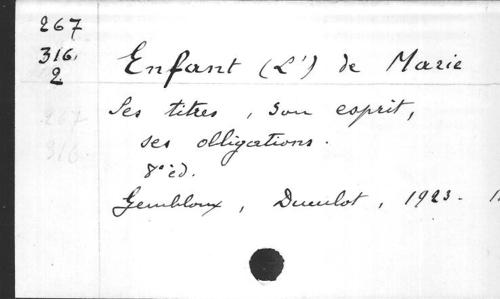 267
316.
2
Enfant (L') de Marie
Ses titres, son esprit,
ses obligations.
8e éd.
Gembloux, Duculot, 1923.
267
316.